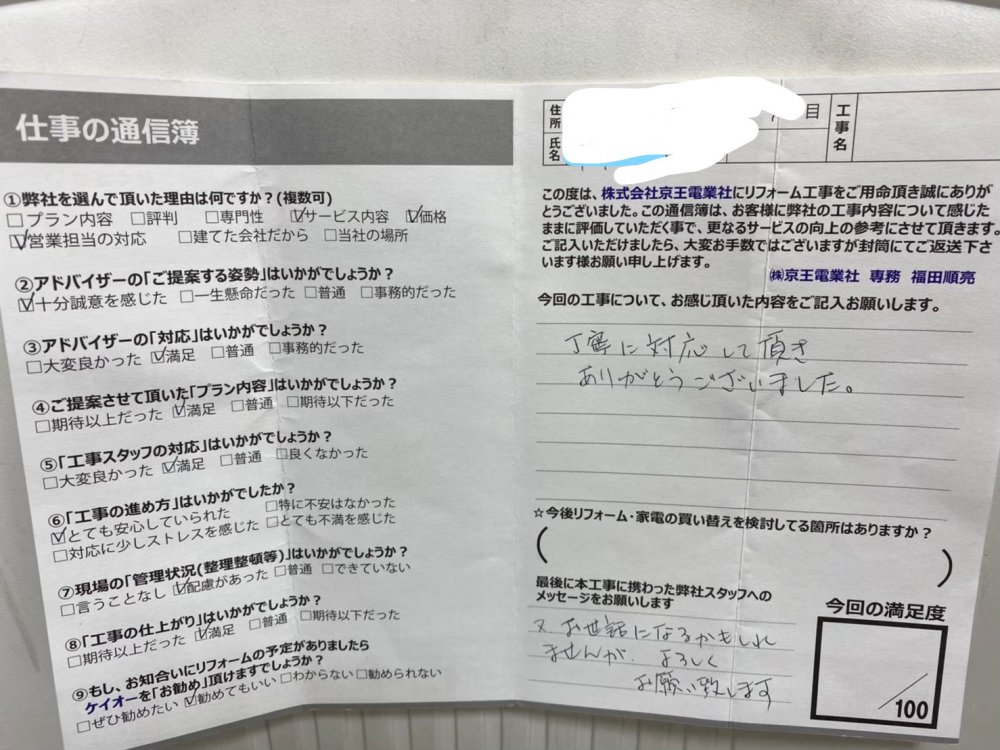 仕事の通信簿
①弊社を選んで頂いた理由は何ですか？(複数可)
□プラン内容 □評判 □専門性 ☑サービス内容 ☑価格
☑営業担当の対応 □建てた会社だから □当社の場所
②アドバイザーの「ご提案する姿勢」はいかがでしょうか？
☑十分誠意を感じた □一生懸命だった □普通 □事務的だった
③アドバイザーの「対応」はいかがでしょうか？
□大変良かった ☑満足 □普通 □事務的だった
④ご提案させて頂いた「プラン内容」はいかがでしょうか？
□期待以上だった ☑満足 □普通 □期待以下だった
⑤「工事スタッフの対応」はいかがでしょうか？
□大変良かった ☑満足 □普通 □良くなかった
⑥「工事の進め方」はいかがでしたか？
☑とても安心していられた □特に不安はなかった
□対応に少しストレスを感じた □とても不満を感じた
⑦現場の「管理状況(整理整頓等)」はいかがでしょうか？
□言うことなし ☑配慮があった □普通 □できていない
⑧「工事の仕上がり」はいかがでしょうか？
□期待以上だった ☑満足 □普通 □期待以下だった
⑨もし、お知合いにリフォームの予定がありましたら
ケイオーを「お勧め」頂けますでしょうか？
□ぜひ勧めたい ☑勧めてもいい □わからない □勧められない
住所
目
工事名
氏名
この度は、株式会社京王電業社にリフォーム工事をご用命頂き誠にありが
とうございました。この通信簿は、お客様に弊社の工事内容について感じた
ままに評価していただく事で、更なるサービスの向上の参考にさせて頂きます。
ご記入いただけましたら、大変お手数ではございますが封筒にてご返送下さ
います様お願い申し上げます。
㈱京王電業社 専務 福田順亮
今回の工事について、お感じ頂いた内容をご記入お願いします。
丁寧に対応して頂き
ありがとうございました。
☆今後リフォーム・家電の買い替えを検討してる箇所はありますか？
( )
最後に本工事に携わった弊社スタッフへの
メッセージをお願いします
又お世話になるかもしれ
ませんが、よろしく
お願い致します
今回の満足度
／100